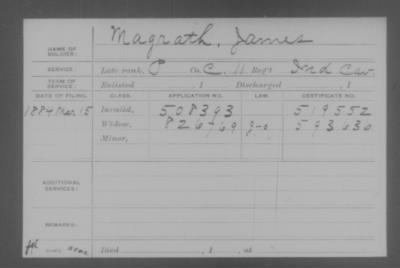 NAME OF SOLDIER: Magrath, James
SERVICE: Late rank, P Co. C, 11 Reg't Ind Cav.
TERM OF SERVICE: Enlisted , 1 Discharged , 1
DATE OF FILING. CLASS. APPLICATION NO. LAW. CERTIFICATE NO.
1884 Mar 15 Invalid, 508393 519552
Widow, 826769 593636
Minor,
ADDITIONAL SERVICES:
REMARKS:
Died , 1 , at